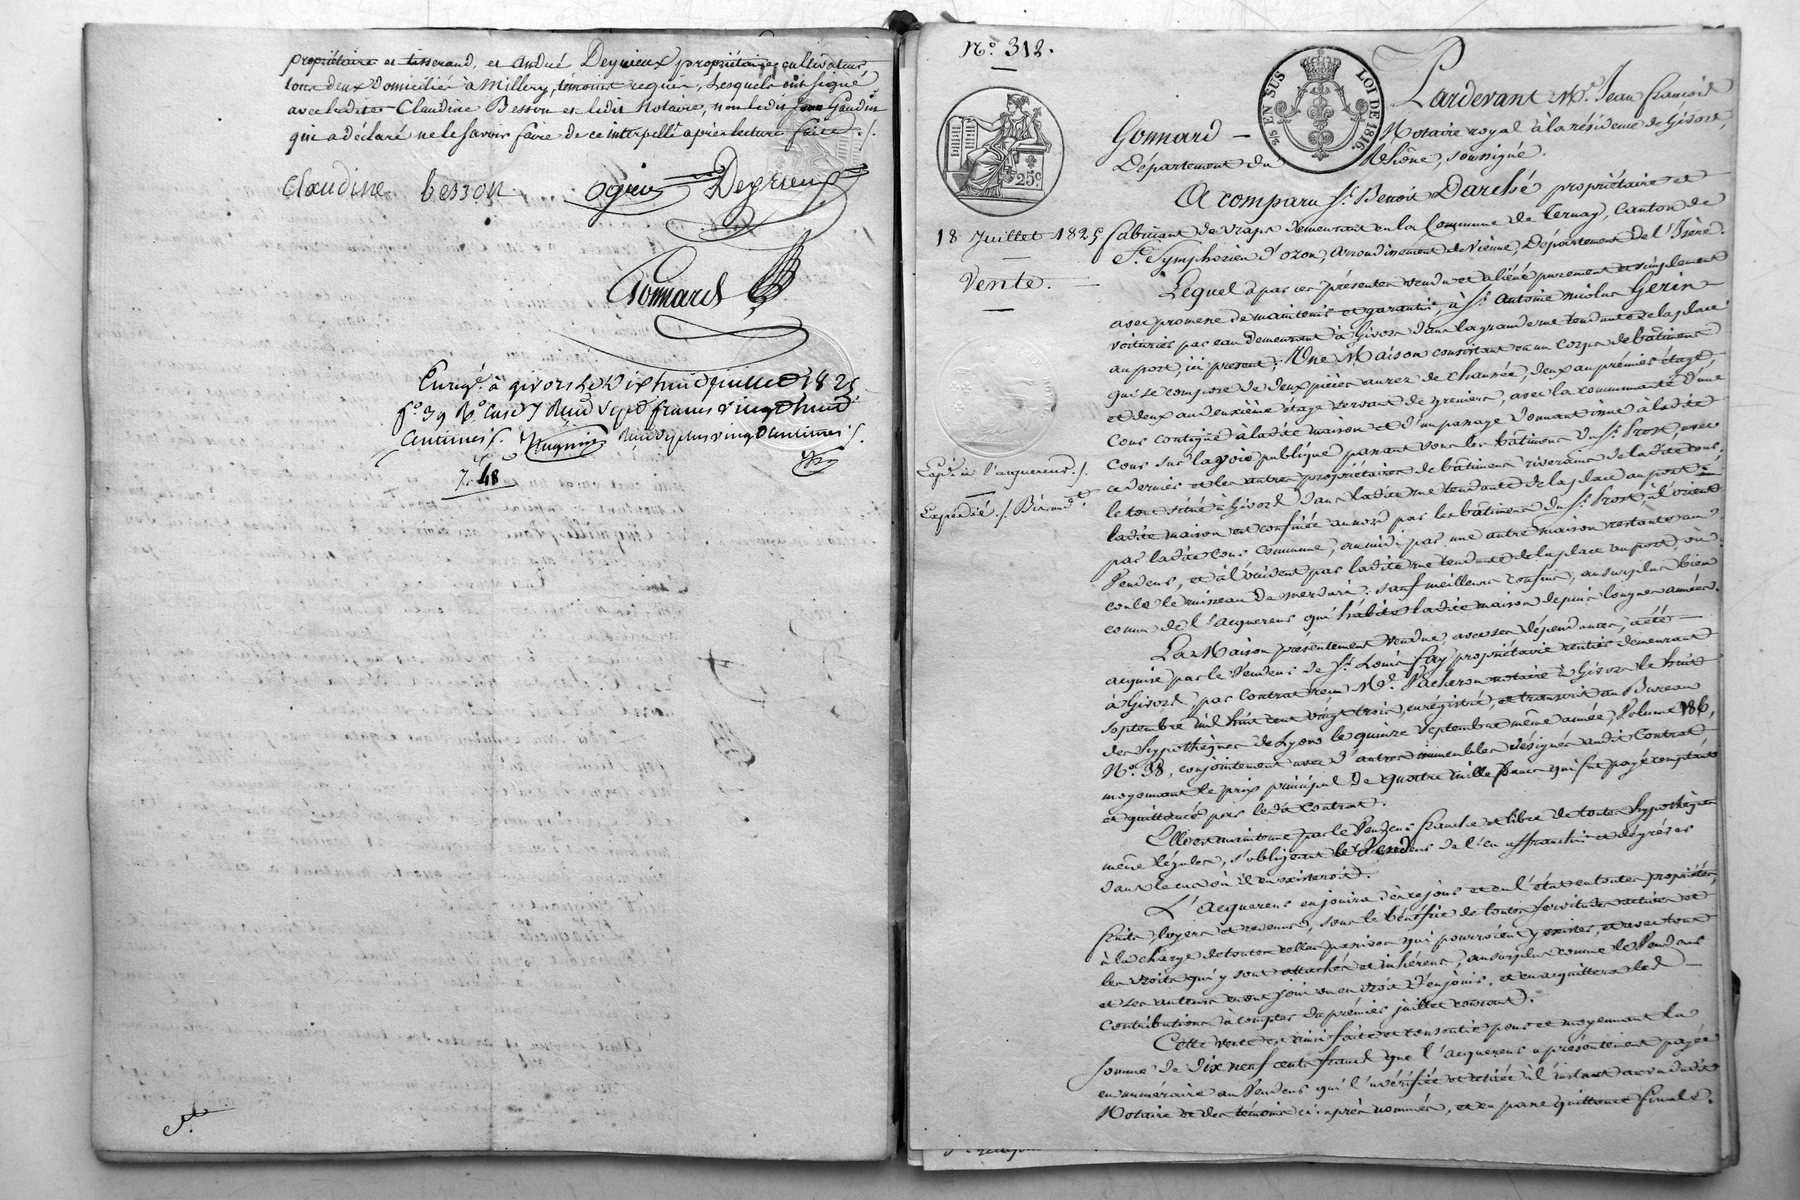 propriétaire et tisserand, et André Deyrieux propriétaire cultivateur
tous deux domiciliés à Millery, témoins requis, lesquels ont signé
avec ladite Claudine Besson et ledit Notaire, non ledit Gaudin
qui a déclaré ne le savoir faire de ce interpellé après lecture faite ./.
Claudine besson ogier Deyrieux
Gonnard
Enregé. à givors le dix huit juillet 1825
fo. 39 Vo. case 7 Reçu Sept francs vingt huit
centimes
7. 48
No. 312.
2/10 EN SUS LOI DE 1816.
25c
18 Juillet 1825.
Vente.
Expédié l'acquereur ./.
Expédié ./.
Pardevant Me. Jean François
Gonnard – Notaire royal à la résidence de Givors,
Département du Rhône, soussigné.
A comparu Sr. Benoit Darché propriétaire et
fabricant de draps demeurant en la Commune de Ternay, Canton de
St. Symphorien d'ozon, arrondissement de Vienne, Département de l'Isère.
Lequel a par ces présentes vendu et aliéné purement et simplement
avec promesse de maintenir et garantir, à Sr. Antoine Nicolas Gerin
voiturier par eau demeurant à Givors dans la grande rue tendante de la place
au port, ici présent; Une Maison consistant en un corps de bâtiment
qui se compose de deux pièces au rez de chaussée, deux au premier étage,
et deux au deuxième étage servant de greniers, avec la communauté d'une
Cour contigüe à ladite maison et d'un passage donnant issue à ladite
Cour sur la voie publique passant sous les bâtiment du Sr. Prost, avec
ce dernier et les autres propriétaires de bâtimens riverains de ladite cour.
le tout situé à Givors dans ladite rue tendante de la place au port.
ladite maison est confinée au nord par les bâtiment du Sr. Prost à l'orient
par ladite Cour commune, au midi par une autre maison restante au
Vendeur, et à l'occident par ladite rue tendante de la place au port, où
coule le ruisseau de merdari; sauf meilleurs confins, au surplus bien
connu de l'acquereur qui habite ladite maison depuis longues années.
La Maison présentement vendue avec ses dépendances, a été
acquise par le Vendeur de Sr. Louis Fay propriétaire rentier demeurant
à Givors, par Contrat reçu Me. Vacheron notaire à Givors le huit
septembre mil huit cent vingt trois, enregistré, et transcrit au Bureau
des hypothèques de Lyon le quinze septembre même année, Volume 186,
No. 38, conjointement avec d'autres immeubles désignés audit Contrat
moyennant le prix principal de quatre mille francs qui fut payé comptant
et quittancé par ledit Contrat.
Elle est maintenue par le Vendeur franche et libre de toutes hypothèques
même légales, s'obligeant le Vendeur de l'en affranchir et dégréver
dans le cas où il en existeroit.
L'Acquereur en jouira dès ce jour et en l'état en toute propriété,
fruits, loyers et revenus, sous le bénéfice de toutes servitudes actives et
à la charge de toutes celles passives qui pourroient y exister, et avec tous
les droits qui y sont attachés et inhérens, au surplus comme le Vendeur
et ses auteurs en ont joui ou eu droit d'en jouir, et en acquittera les
Contributions à compter du premier juillet courant.
Cette vente est ainsi faite et consentie pour et moyennant la
somme de dix neuf cents francs que l'acquereur a présentement payée
en numéraire au Vendeur qui l'a vérifiée et retirée à l'instant au vu dudit
Notaire et des témoins ci-après nommés, et en passe quittance finale.